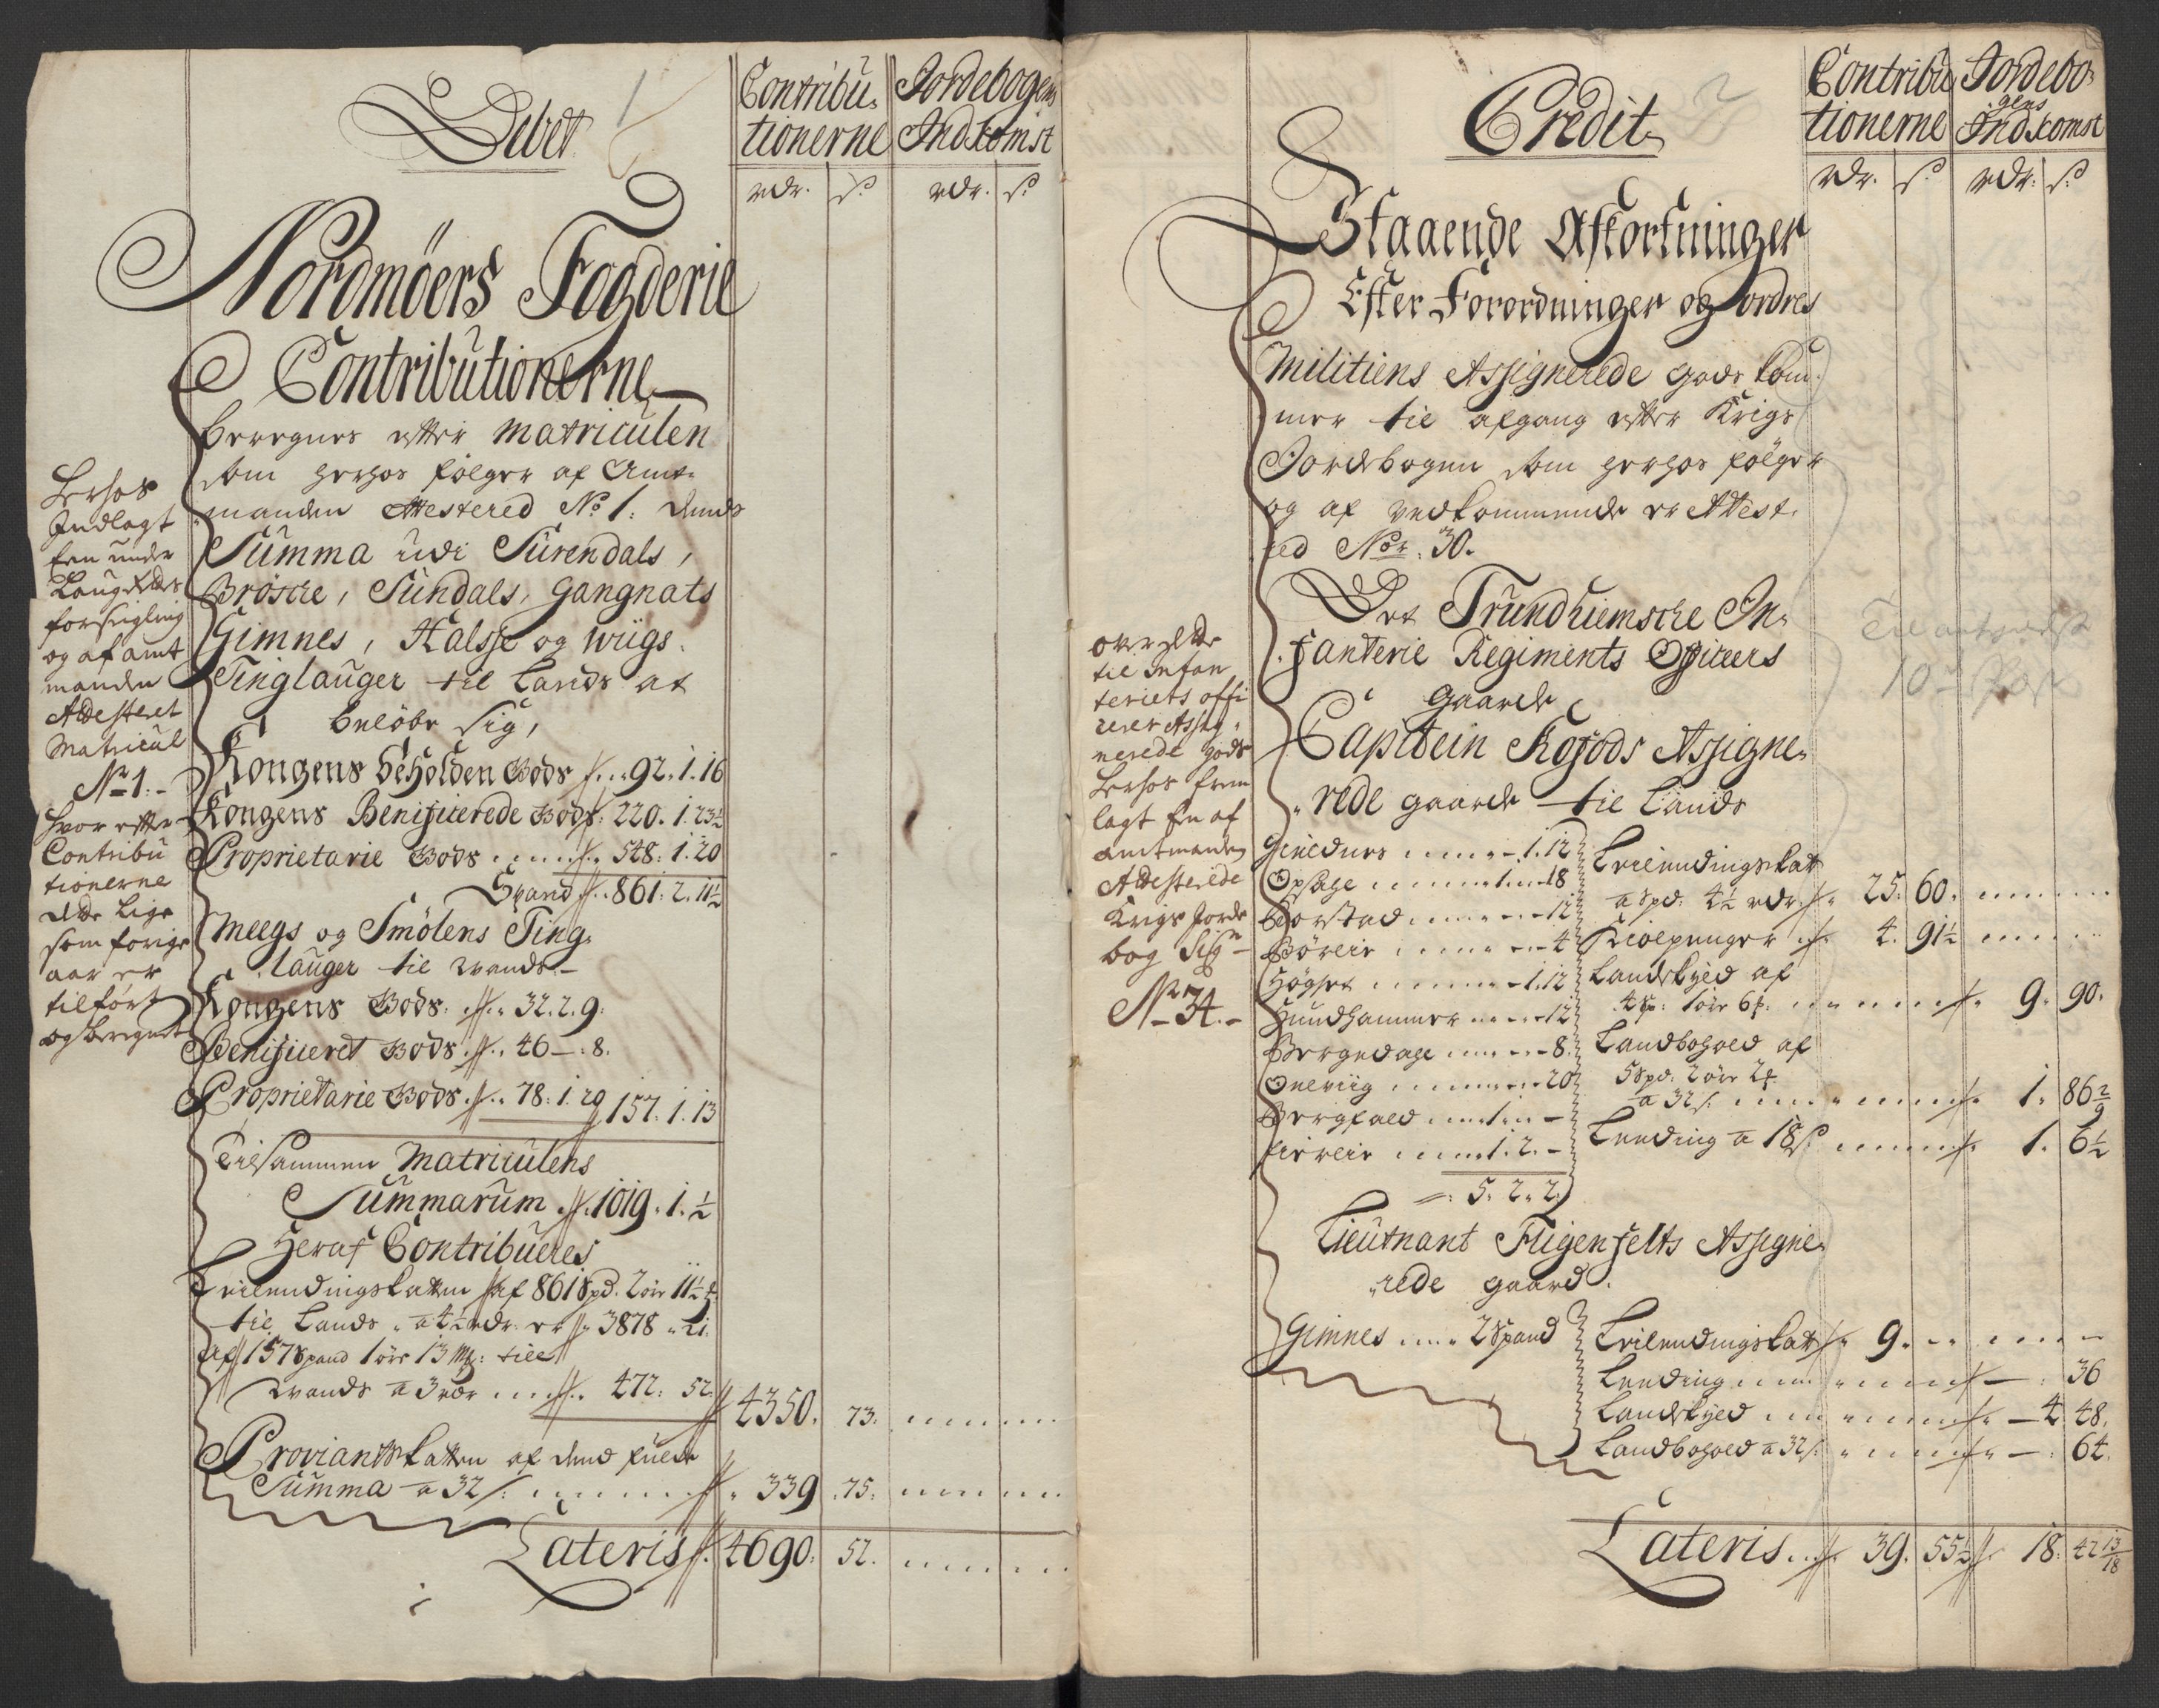 Debet
1
Contribu-
tionerne
Jordebogens
Indkomst
rdr. s. rdr. s.
Nordmöers Fogderie
Contributionerne
beregnes efter Matriculen
som herhos følger af Amt-
manden Attestered No 1: dends
Summa udi Surendals,
Bröske, Sundals, Gangnats
Gimnes, Halsse og Wügs
Tinglauger til Lands at
beløbe sig,
Kongens beholden Gods 92. 1. 16
Kongens Benificerede Gods 220. 1. 23½
Proprietarie Gods 548. 1. 20
Spand 861. 2. 11½
Meegs og Smölens Ting-
lauger til Wands
Kongens Gods 32. 2. 9.
Benificeret Gods 46 — 8.
Proprietarie Gods 78. 1. 20
157. 1. 13
Tilsammen Matriculens
Summarum 1019. 1. ½
Heraf Contribueres
Leilendingskatten af 861 Spd. 2 öre 11½
til Lands a 4½ rdr. er 3878. 21.
af 157 Spand 1 öre 13 Mk: till
Wands a 3 rdr 472. 52. 4350. 73.
Proviantskatten af dend fulde
Summa a 32 s. 339. 75.
Lateris 4690. 52.
Herhos
Indlagt
Een under
Laugrettes
forseigling
og af amt
manden
Attesteret
Matricul
No 1.
hvor efter
Contribu
tionerne
dette lige
som forige
aar er
tilført
og beregnet
Credit
2
Contribu
tionerne
Jordebo-
gens
Indkomst
rdr. s. rdr. s.
Staaende Afkortninger
Efter Forordninger og ordres
Militiens Assignerede gods kom-
mer til afgang efter Krigs
Jordebogen som herhos følger
og af vedkommende er Attest-
red Nor. 30.
Det Trundhiemske In-
fanterie Regiments Officeers
Gaarde
Capitein Kofods Assigne-
rede gaarde til Lands
1. 12
Opsahl 1. 18
12
4
1. 12
Hundhammer 12
8.
20
1. —
1. 2. —
5. 2. 2
Leilendingskat
a Spd. 4½ rdr. 25. 60.
4. 91½
Landskyld af
4 sp: 1 öre 6 9. 90.
Landbohold af
5 Spd. 2 öre 2
a 32 s. 1. 86 2/9
Leeding a 18 s 1. 6½
Lieutnant Fligenfelts Assigne-
rede gaard.
Gimnes 2 Spand
Leilendingskat 9.
Leeding — 36
Landskyld 4. 48.
Landbohold a 32 s. — 64.
Lateris 39. 55½ 18. 42 13/18
over dette
til Infan
teriets offi
cerer Assig-
nerede gods
herhos frem
lagt En af
amtmanden
Attesterede
Krigs Jorde
bog Sign
No 34.